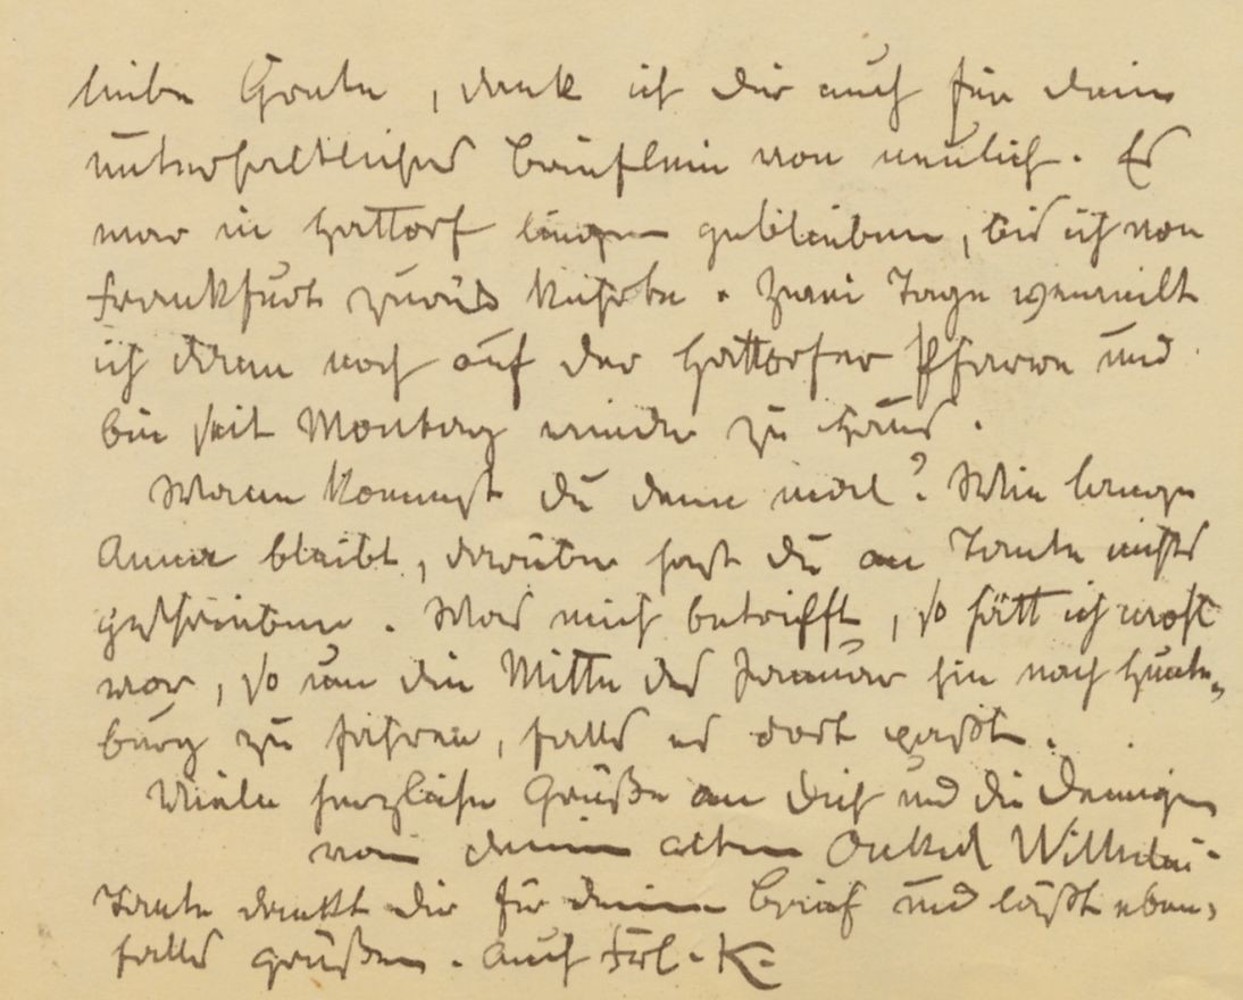 liebe Grete, dank ich dir auch für dein
unterhaltliches Brieflein von neulich. Es
war in Hattorf liegen geblieben, bis ich von
Frankfurt zurück kehrte. Zwei Tage verweilt
ich dann noch auf der Hattorfer Pfarre und
bin seit Montag wieder zu Haus.
Wann kommst du denn mal? Wie lange
Anna bleibt, darüber hast du an Tante nichts
geschrieben. Was mich betrifft, so hätt ich wohl
vor, so um die Mitte des Januar hin nach Hunte-
burg zu fahren, falls es dort paßt.
Viele herzliche Grüße an dich und die Deinigen
von deinem alten Onkel Wilhelm
Tante dankt dir für deinen Brief und läßt eben-
falls grüßen. Auch Frl. K.